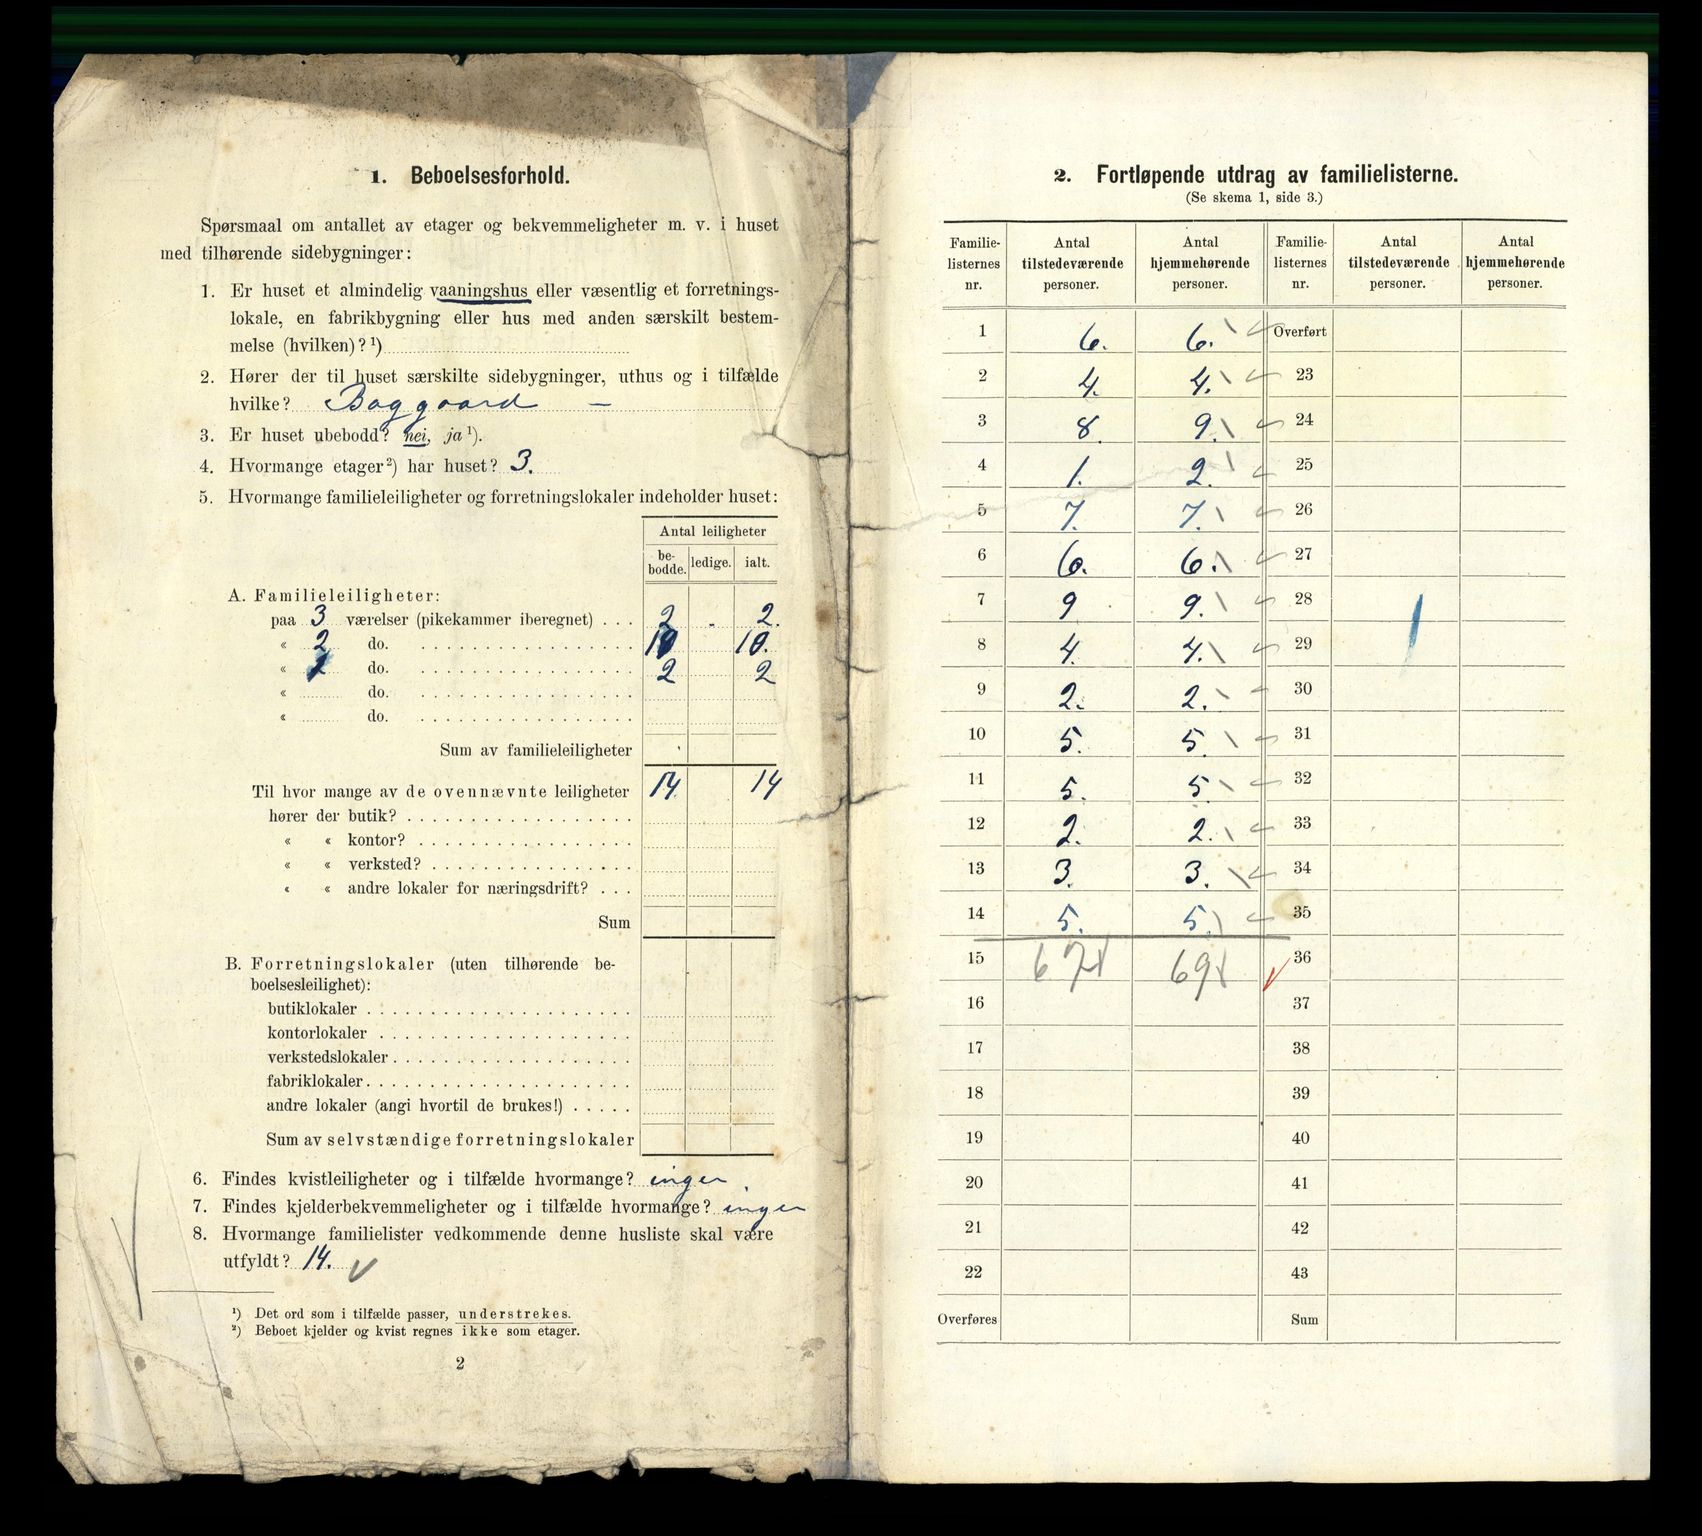 1. Beboelsesforhold.
Spørsmaal om antallet av etager og bekvemmeligheter m. v. i huset
med tilhørende sidebygninger:
1. Er huset et almindelig vaaningshus eller væsentlig et forretnings-
lokale, en fabrikbygning eller hus med anden særskilt bestem-
melse (hvilken)? ¹)
2. Hører der til huset særskilte sidebygninger, uthus og i tilfælde
hvilke? Baggaard –
3. Er huset ubebodd? nei, ja ¹).
4. Hvormange etager ²) har huset? 3.
5. Hvormange familieleiligheter og forretningslokaler indeholder huset:
Antal leiligheter
be-bodde. ledige. ialt.
A. Familieleiligheter:
paa 3 værelser (pikekammer iberegnet) . . . 2 . 2.
« 2 do. 10 10.
« do. 2 2
« do.
« do.
Sum av familieleiligheter
Til hvor mange av de ovennævnte leiligheter 14. 14
hører der butik?
« « kontor?
« « verksted?
« « andre lokaler for næringsdrift? . . .
Sum
B. Forretningslokaler (uten tilhørende be-
boelsesleilighet):
butiklokaler
kontorlokaler
verkstedslokaler
fabriklokaler
andre lokaler (angi hvortil de brukes!)
Sum av selvstændige forretningslokaler
6. Findes kvistleiligheter og i tilfælde hvormange? ingen
7. Findes kjelderbekvemmeligheter og i tilfælde hvormange? ingen
8. Hvormange familielister vedkommende denne husliste skal være
utfyldt? 14.
¹) Det ord som i tilfælde passer, understrekes.
²) Beboet kjelder og kvist regnes ikke som etager.
2
2. Fortløpende utdrag av familielisterne.
(Se skema 1, side 3.)
Familie- Antal Antal Familie- Antal Antal
listernes tilstedeværende hjemmehørende listernes tilstedeværende hjemmehørende
nr. personer. personer. nr. personer. personer.
1 6. 6. Overført
2 4. 4. 23
3 8. 9. 24
4 1. 2. 25
5 7. 7. 26
6 6. 6. 27
7 9 9. 28
8 4. 4. 29
9 2. 2. 30
10 5. 5. 31
11 5. 5. 32
12 2. 2. 33
13 3. 3. 34
14 5. 5. 35
15 67 69 36
16 37
17 38
18 39
19 40
20 41
21 42
22 43
Overføres Sum